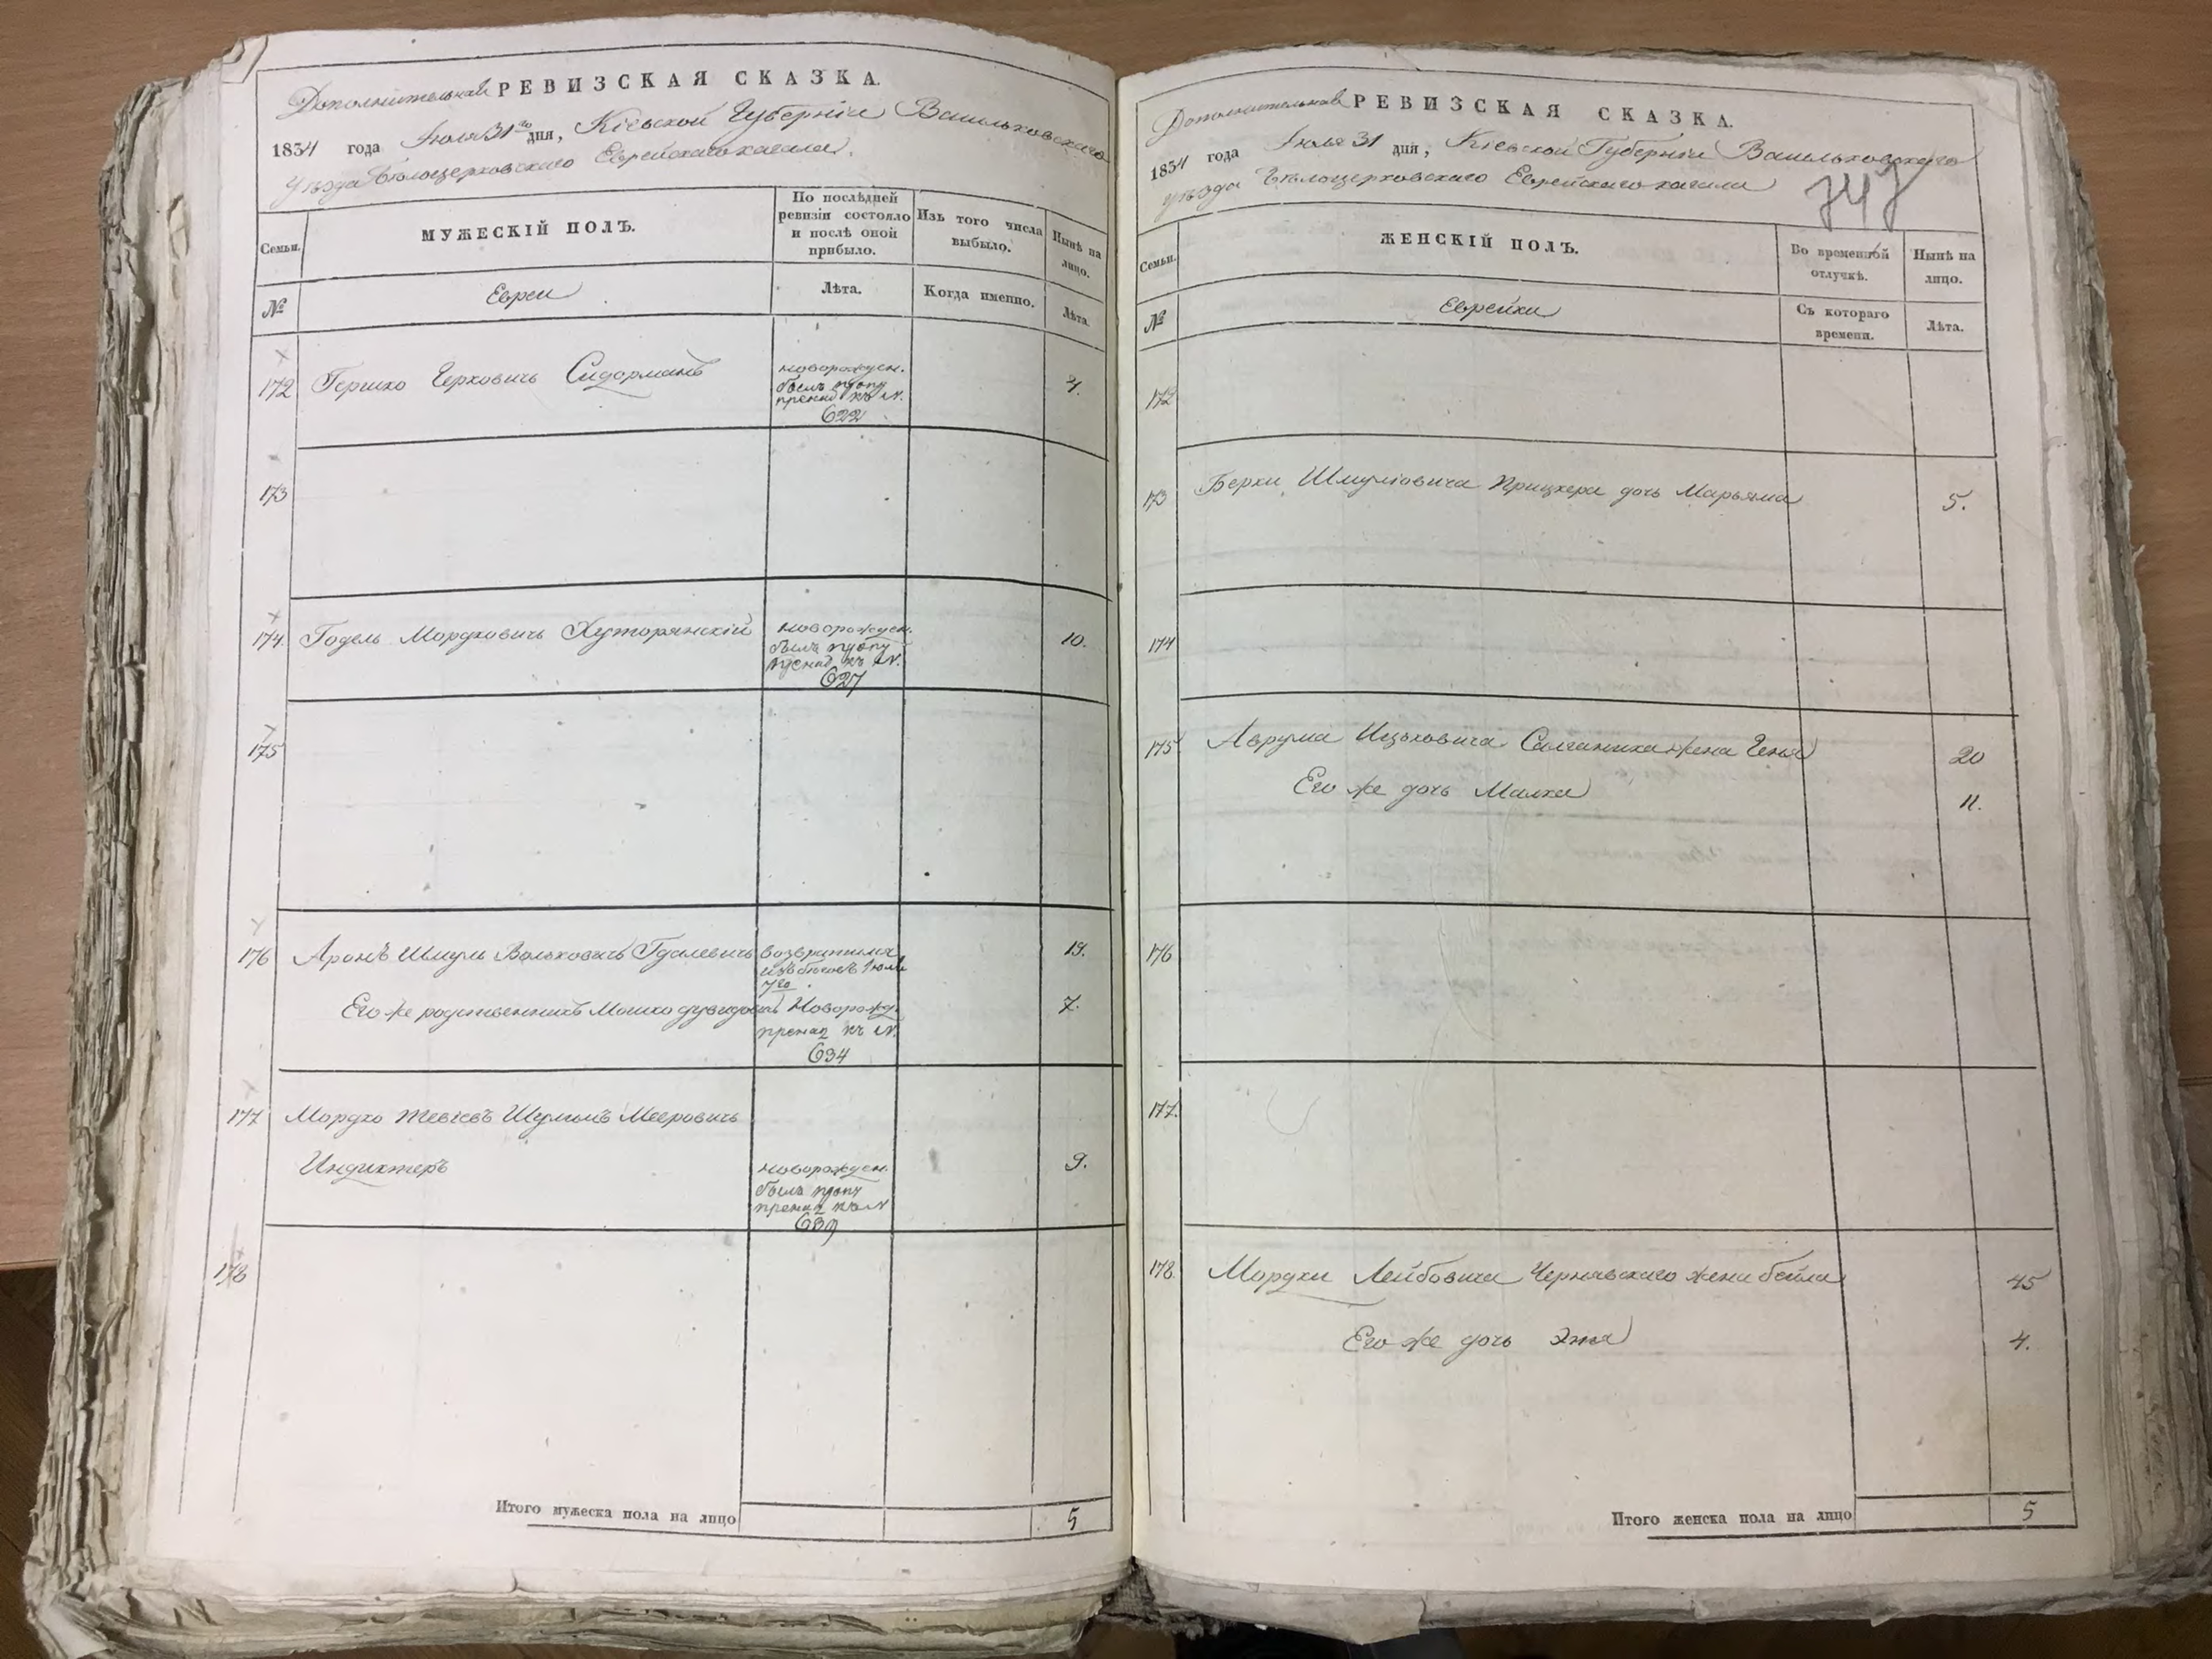 Дополнительная РЕВИЗСКАЯ СКАЗКА.
1834 года Іюля 31го дня, Кіевской Губерніи Васильковскаго
уѣзда Бѣлоцерковскаго Еврейскаго кагала.
Семьи.
МУЖЕСКІЙ ПОЛЪ.
По послѣдней ревизіи состояло и послѣ оной прибыло.
Изъ того числа выбыло.
Нынѣ на лицо.
№
Евреи
Лѣта.
Когда именно.
Лѣта.
172 Гершко Берковичь Сидорманъ
новорожден.
былъ пропу
принад къ N.
622
4.
173
174. Годель Мордковичь Хуторянскій
новорожден.
былъ пропу
принад къ N.
627
10.
175
176 Аронъ Шмуль Вольковичь Гдалевичь
возвратился
изъ бѣговъ Іюля
7го
19.
Его же родственникъ Мошко Дувидовичь
Новорожд.
принад къ N.
634
7.
177 Мордко Тевіевъ Шулимъ Мееровичь
Индихтеръ
новорожден.
былъ проп
принад къ N
639
9.
178
Итого мужеска пола на лицо 5
Дополнительная РЕВИЗСКАЯ СКАЗКА.
1834 года Іюля 31 дня, Кіевской Губерніи Васильковскаго
уѣзда Бѣлоцерковскаго Еврейскаго кагала
747
Семьи.
ЖЕНСКІЙ ПОЛЪ.
Во временной отлучкѣ.
Нынѣ на лицо.
№
Еврейки
Съ котораго времени.
Лѣта.
172
173 Берки Шмуліовича Прицкера дочь Марьяма 5.
174
175 Аврума Ицьковича Салганика жена Геня 20
Его же дочь Малка 11.
176
177.
178. Мордки Лейбовича Чернявскаго жена Бейла 45
Его же дочь Эня 4.
Итого женска пола на лицо 5